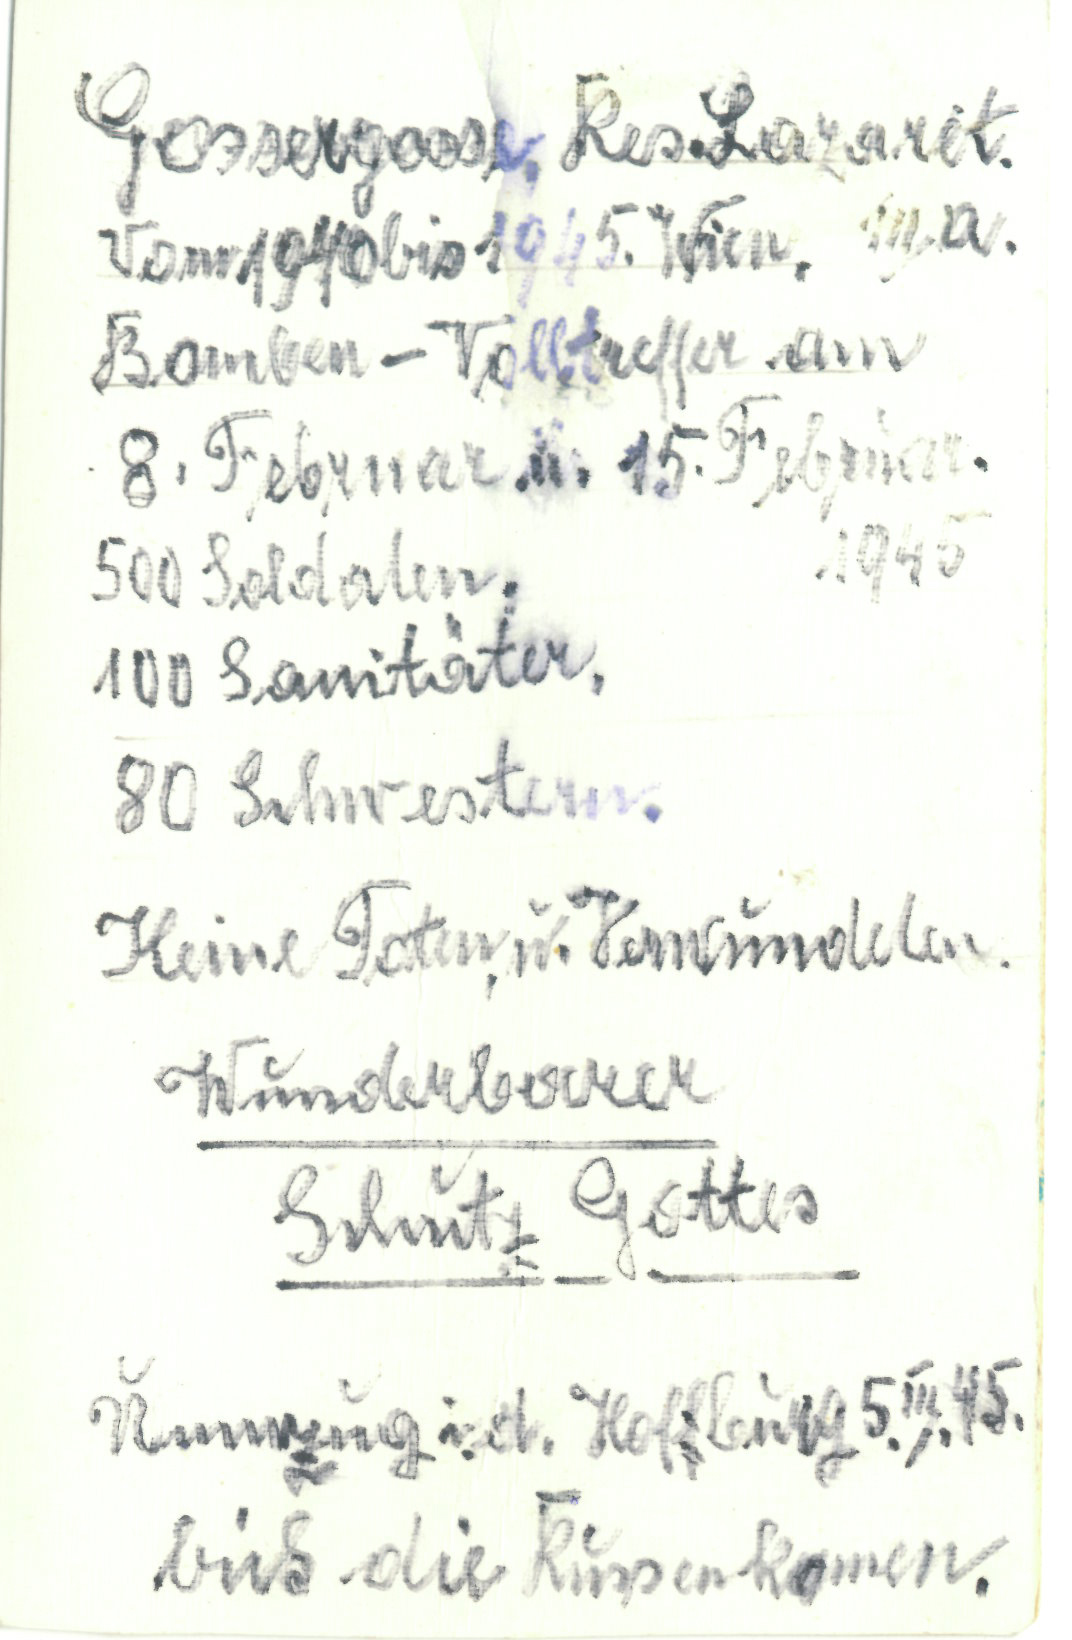 Gossergasse, Res. Lazarett.
Vom 1940 bis 1945. Wien. III. a.
Bomben - Volltreffer am
8. Februar u. 15. Februar.
1945
500 Soldaten,
100 Sanitäter,
80 Schwestern.
Keine Toten, u. Verwundeten.
Wunderbarer
Schutz Gottes
i. d. Hoffburg 5. III. 45.
bis die Russen kamen.